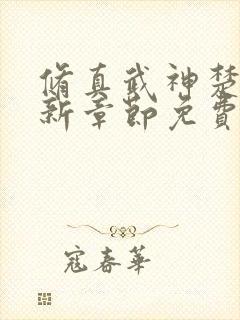 脩真武神楚
新章節免費
寇春華